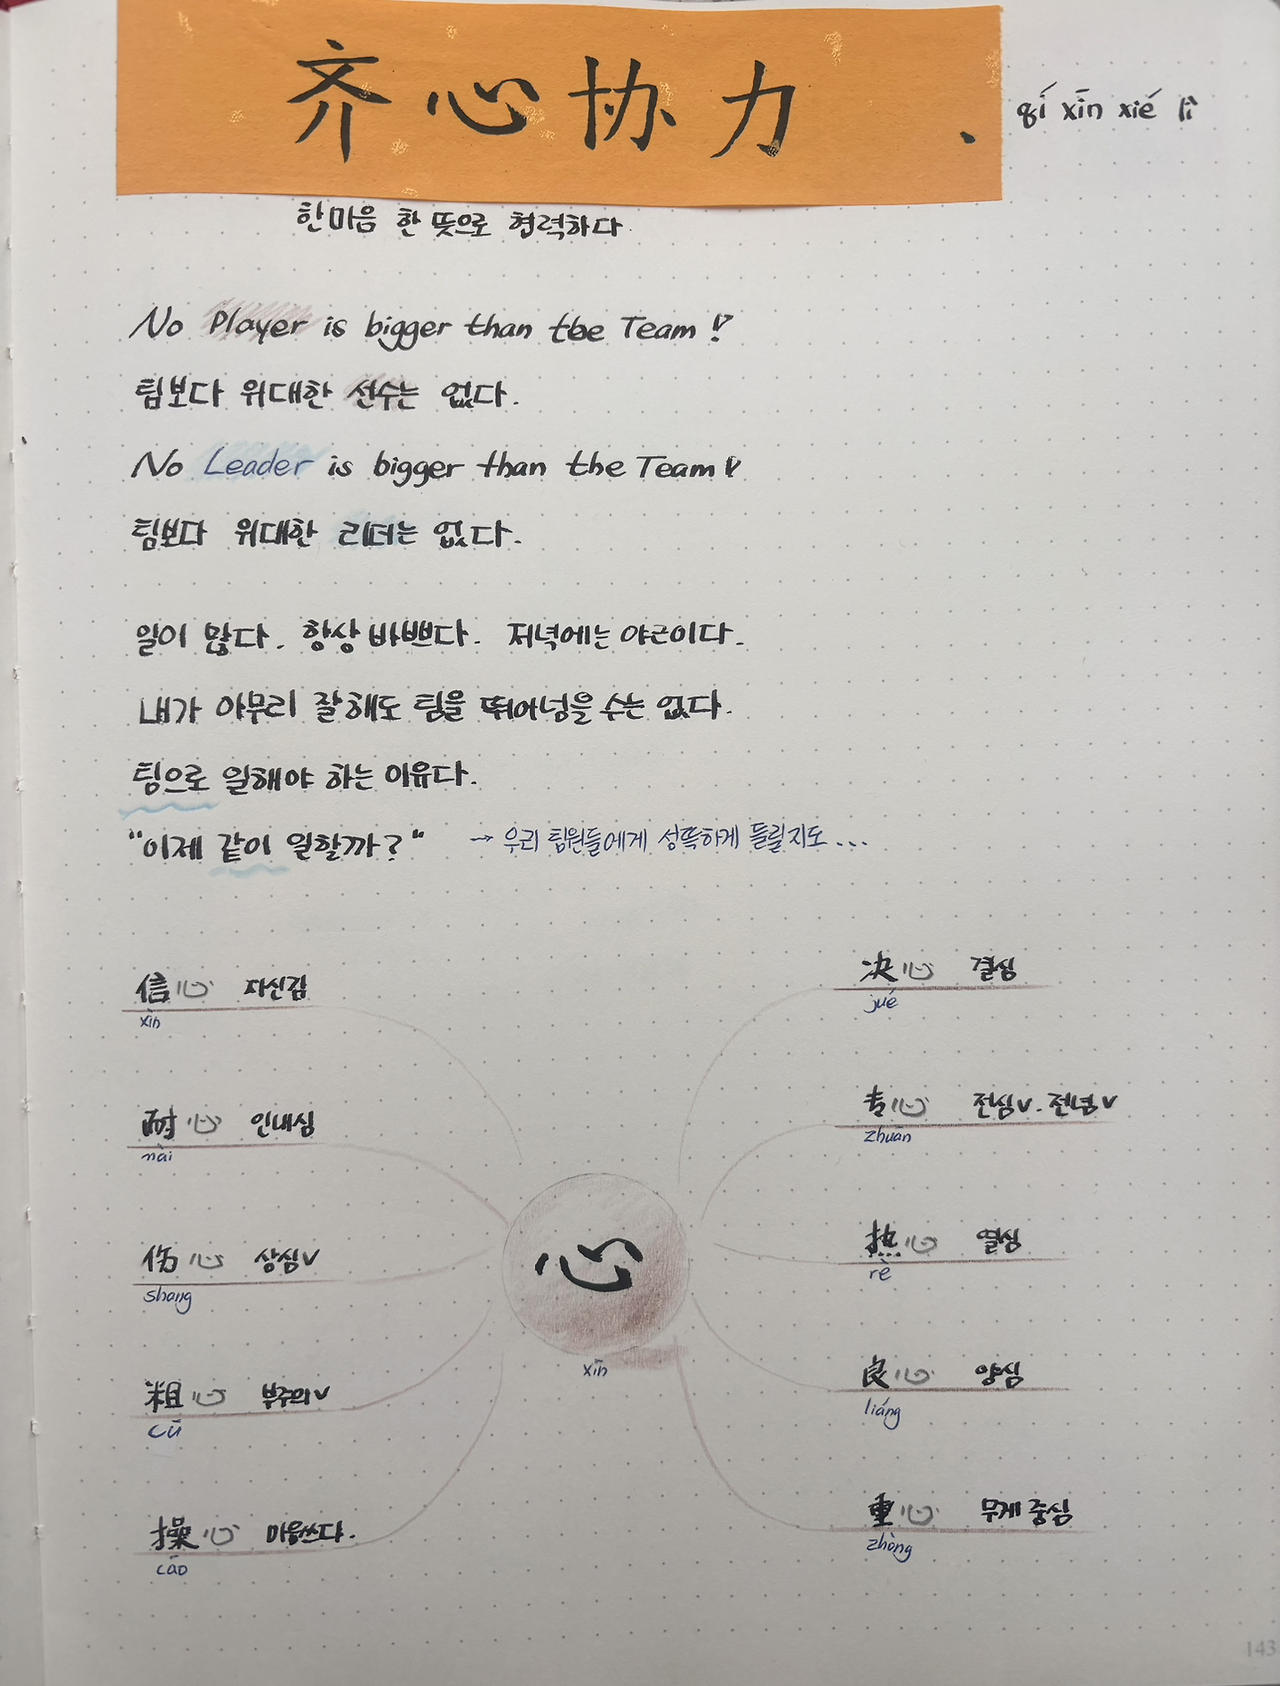 齐心协力.
qí xīn xié lì
한마음 한 뜻으로 협력하다
No Player is bigger than the Team!
팀보다 위대한 선수는 없다.
No Leader is bigger than the Team!
팀보다 위대한 리더는 없다.
일이 많다. 항상 바쁘다. 저녁에는 야근이다.
내가 아무리 잘해도 팀을 뛰어넘을 수는 없다.
팀으로 일해야 하는 이유다.
"이제 같이 일할까?" → 우리 팀원들에게 섬뜩하게 들릴지도...
信心 자신감
xìn
耐心 인내심
nài
伤心 상심v
shang
粗心 부주의v
cū
操心 마음쓰다.
cāo
心
xīn
决心 결심
jué
专心 전심v. 전념v
zhuān
热心 열심
rè
良心 양심
liáng
重心 무게 중심
zhòng
143